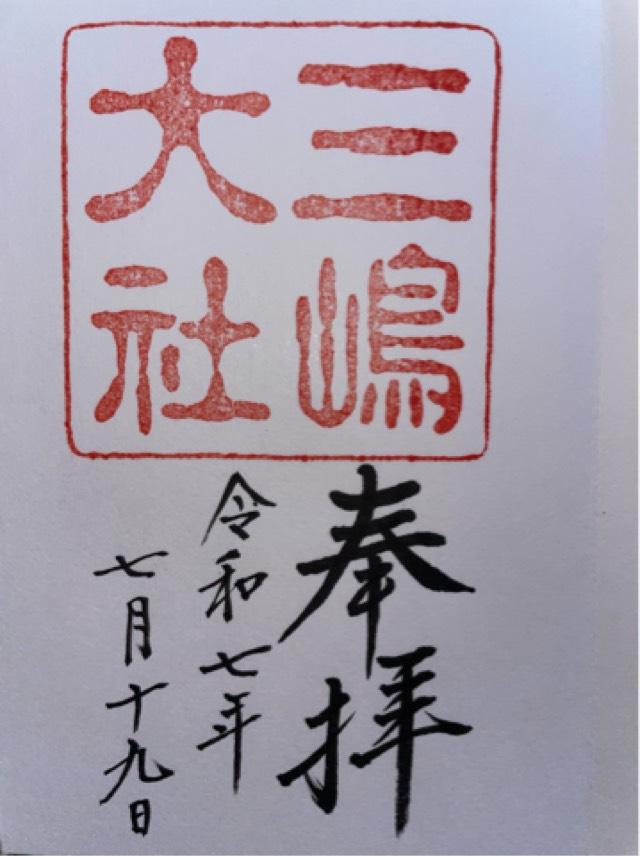 三嶋
大社
奉拝
令和七年
七月十九日